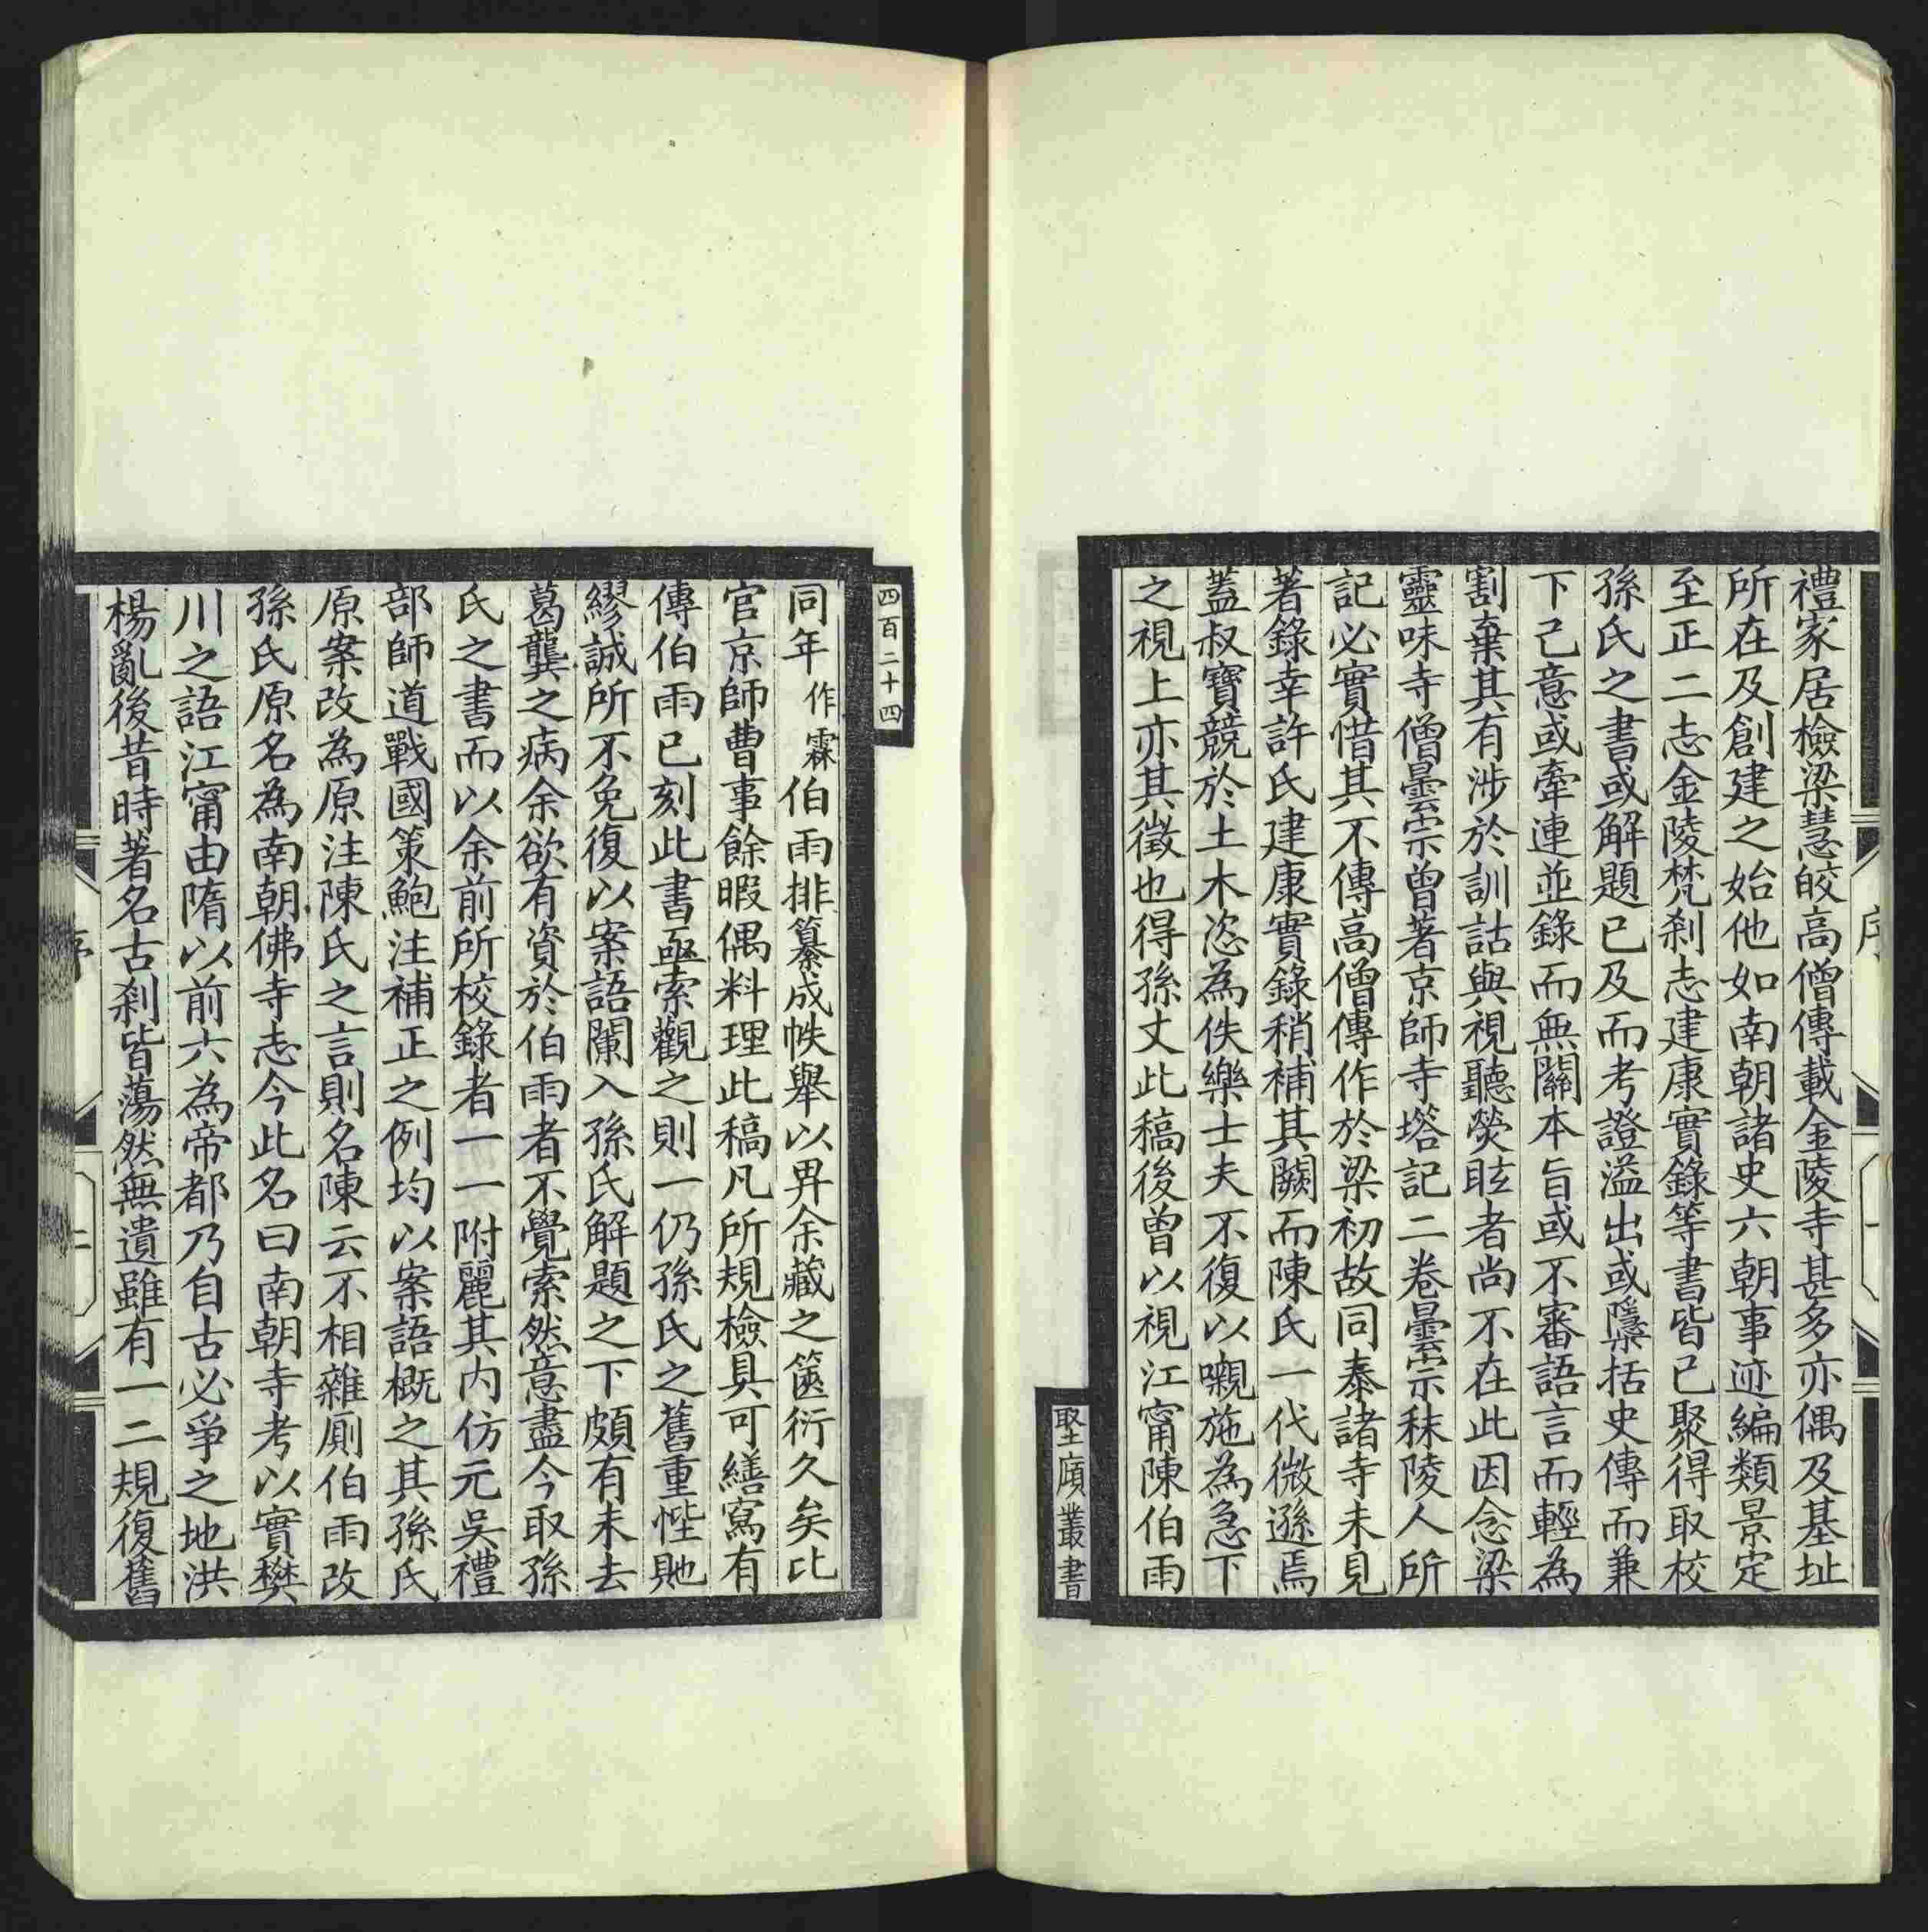 禮家居檢梁慧皎高僧傳載金陵寺甚多亦偶及基址
所在及創建之始他如南朝諸史六朝事迹編類景定
至正二志金陵梵刹志建康實錄等書皆已聚得取校
孫氏之書或解題已及而考證溢出或隱括史傳而兼
下己意或牽連並錄而無關本旨或不審語言而輕為
割棄其有涉於訓詁與視聽熒眩者尚不在此因念梁
靈味寺僧曇宗曾著京師寺塔記二卷曇宗秣陵人所
記必實惜其不傳高僧傳作於梁初故同泰諸寺未見
著錄幸許氏建康實錄稍補其闕而陳氏一代微遜焉
蓋叔寶競於土木恣為佚樂士夫不復以嚫施為急下
之視上亦其徵也得孫丈此稿後曾以視江甯陳伯雨
堅廎叢書
四百二十四
同年作霖伯雨排纂成帙舉以畀余藏之篋衍久矣比
官京師曹事餘暇偶料理此稿凡所規檢具可繕寫有
傳伯雨已刻此書亟索觀之則一仍孫氏之舊重悂貤
繆誠所不免復以案語闌入孫氏解題之下頗有未去
葛龔之病余欲有資於伯雨者不覺索然意盡今取孫
氏之書而以余前所校錄者一一附麗其内仿元吳禮
部師道戰國策鮑注補正之例均以案語概之其孫氏
原案改為原注陳氏之言則名陳云不相雜廁伯雨改
孫氏原名為南朝佛寺志今此名曰南朝寺考以實樊
川之語江甯由隋以前六為帝都乃自古必爭之地洪
楊亂後昔時著名古刹皆蕩然無遺雖有一二規復舊